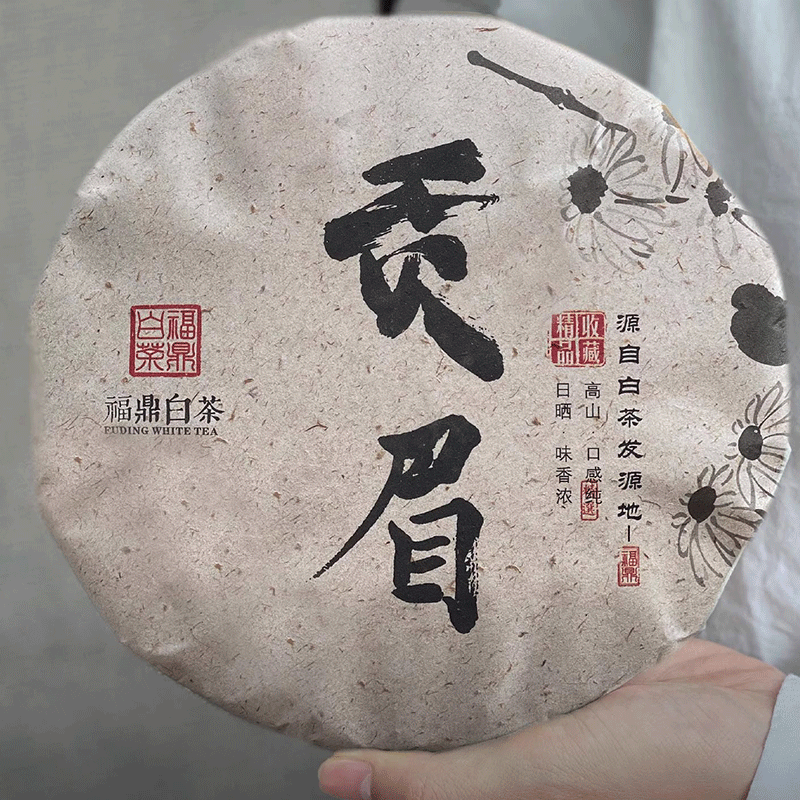 贡眉
福鼎白茶
福鼎白茶
FUDING WHITE TEA
收藏精品
源自白茶发源地—
福鼎
高山 口感纯
日晒 味香浓